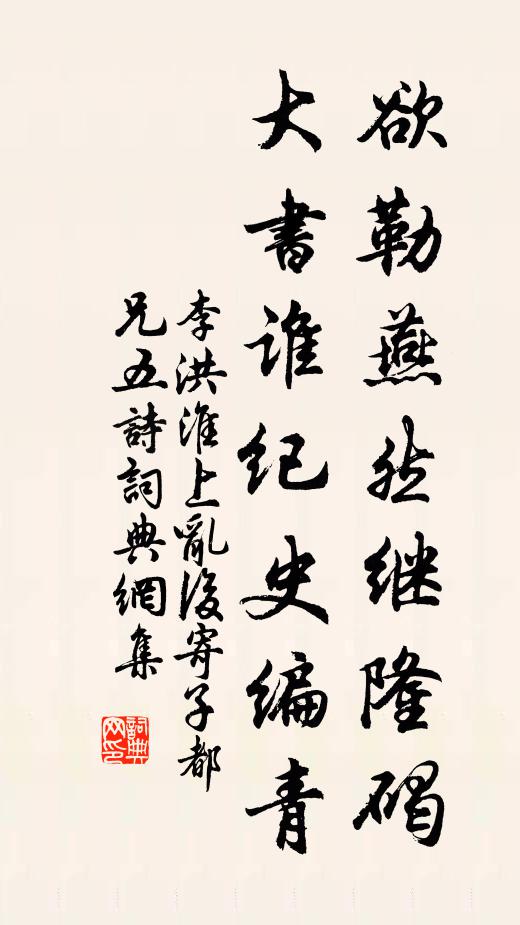 欲勒燕然继隆碣
大书谁纪史编青
李洪淮上亂後寄子都
兄五詩詞典網集
詞典网印